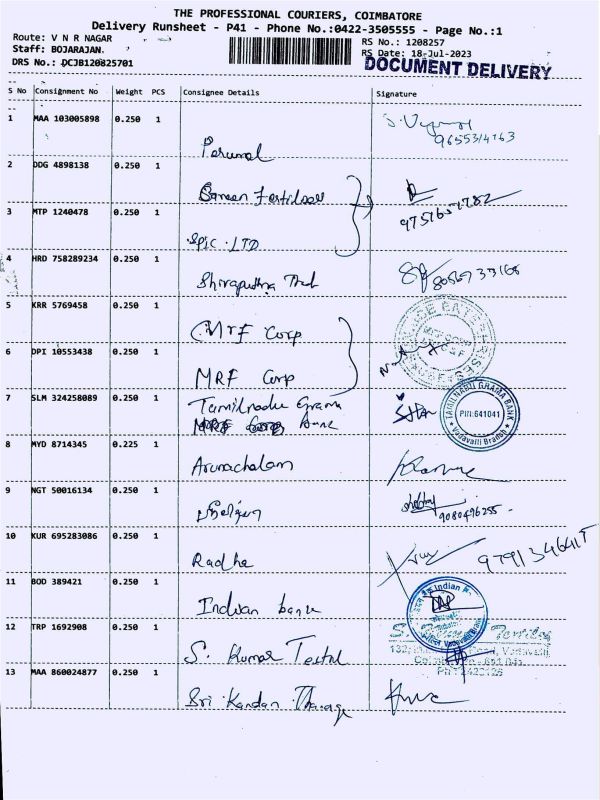 THE PROFESSIONAL COURIERS, COIMBATORE
Delivery Runsheet - P41 - Phone No.:0422-3505555 - Page No.:1
Route: V N R NAGAR
RS No.: 1208257
Staff: BOJARAJAN.
RS Date: 18-Jul-2023
DRS No.: DCJB120825701
DOCUMENT DELIVERY
S No Consignment No Weight PCS Consignee Details Signature
1 MAA 103005898 0.250 1
Perumal
2 DDG 4898138 0.250 1
3 MTP 1240478 0.250 1
SPIC . LTD
4 HRD 758289234 0.250 1
5 KRR 5769458 0.250 1
MRF Corp
6 DPI 10553438 0.250 1
MRF Corp
7 SLM 324258089 0.250 1
Tamilnadu Grama
TAMILNADU GRAMA BANK
PIN:641041
Vadavalli Branch
8 MYD 8714345 0.225 1
Arunachalam
9 NGT 50016134 0.250 1
9080496255
10 KUR 695283086 0.250 1
Radha
11 BOD 389421 0.250 1
Indian bank
12 TRP 1692908 0.250 1
S. Kumar
13 MAA 860024877 0.250 1
Sri Kandan